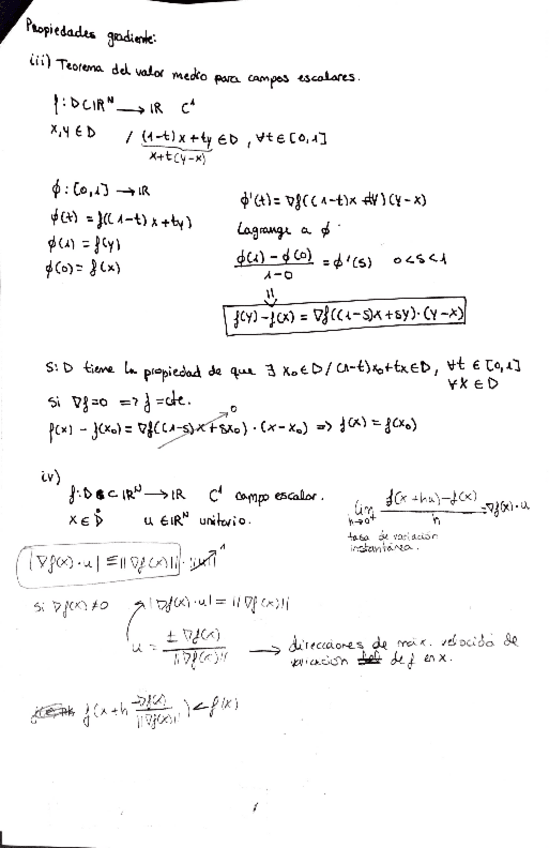 Propiedades gradiente:
iii) Teorema del valor medio para campos escalares.
f: D⊂ℝᴺ → ℝ C¹
x,y ∈ D / (1-t)x + ty ∈ D, ∀t ∈ [0,1]
x+t(y-x)
ϕ: [0,1] → ℝ
ϕ(t) = f((1-t)x + ty)
ϕ(1) = f(y)
ϕ(0) = f(x)
ϕ'(t) = ∇f((1-t)x + ty)(y-x)
Lagrange a ϕ
(ϕ(1) - ϕ(0))/(1-0) = ϕ'(s) 0<s<1
⇓
f(y) - f(x) = ∇f((1-s)x + sy)·(y-x)
Si D tiene la propiedad de que ∃ x₀∈D / (1-t)x₀+tx∈D, ∀t ∈ [0,1]
∀x∈D
si ∇f=0 => f=cte.
f(x) - f(x₀) = ∇f((1-s)x + sx₀)·(x-x₀) => f(x) = f(x₀)
0
iv)
f: D⊂ℝᴺ → ℝ C¹ campo escalar.
x ∈ D̊ u∈ℝᴺ unitario.
lim h→0⁺ (f(x+hu)-f(x))/h = ∇f(x)·u
tasa de variación
instantánea.
|∇f(x)·u| ≤ ||∇f(x)||·||u||
1
si ∇f(x)≠0 |∇f(x)·u| = ||∇f(x)||
u = ±∇f(x)/||∇f(x)|| → direcciones de máx. velocida de
variacion de f en x.
f(x+h -∇f(x)/||∇f(x)||) < f(x)